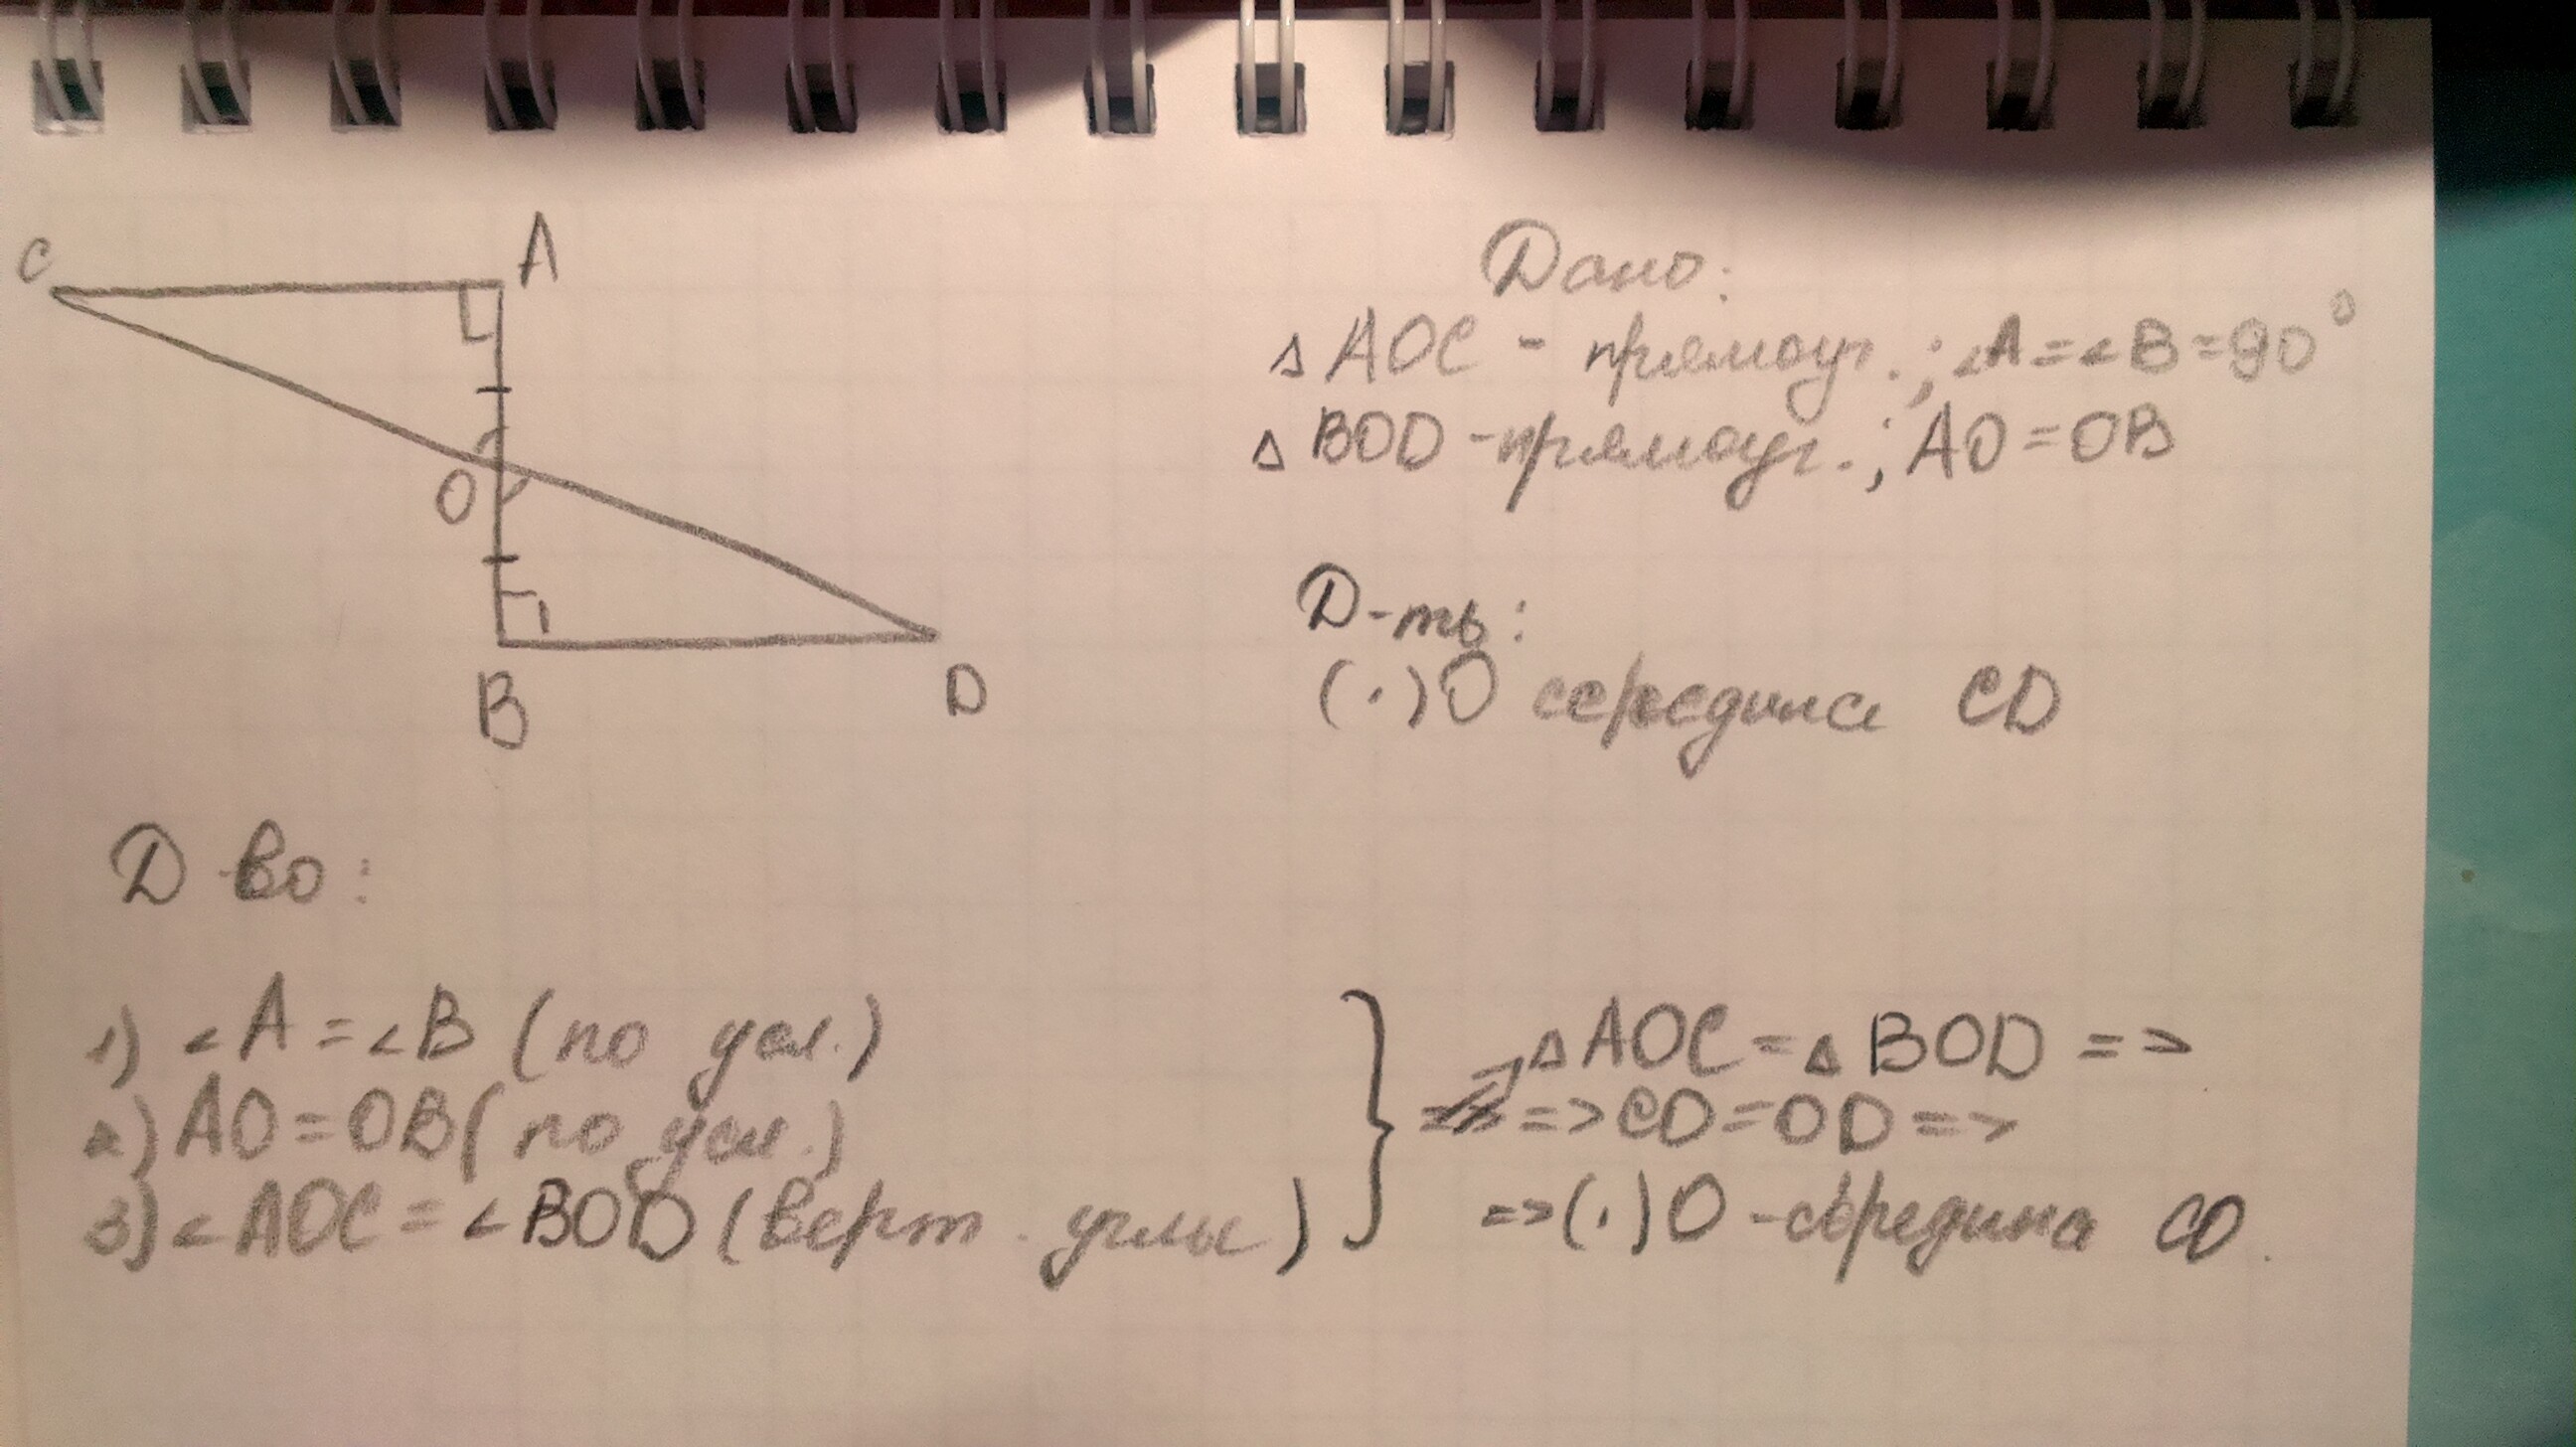 C
A
O
B
D
Дано:
△ AOC - прямоуг.; ∠A=∠B=90°
△ BOD - прямоуг.; AO=OB
Д-ть:
(·)O середина CD
Д-во:
1) ∠A=∠B (по усл.)
2) AO=OB (по усл.)
3) ∠AOC=∠BOD (верт. углы)
=> △AOC=△BOD =>
=> CO=OD =>
=> (·)O - середина CD.